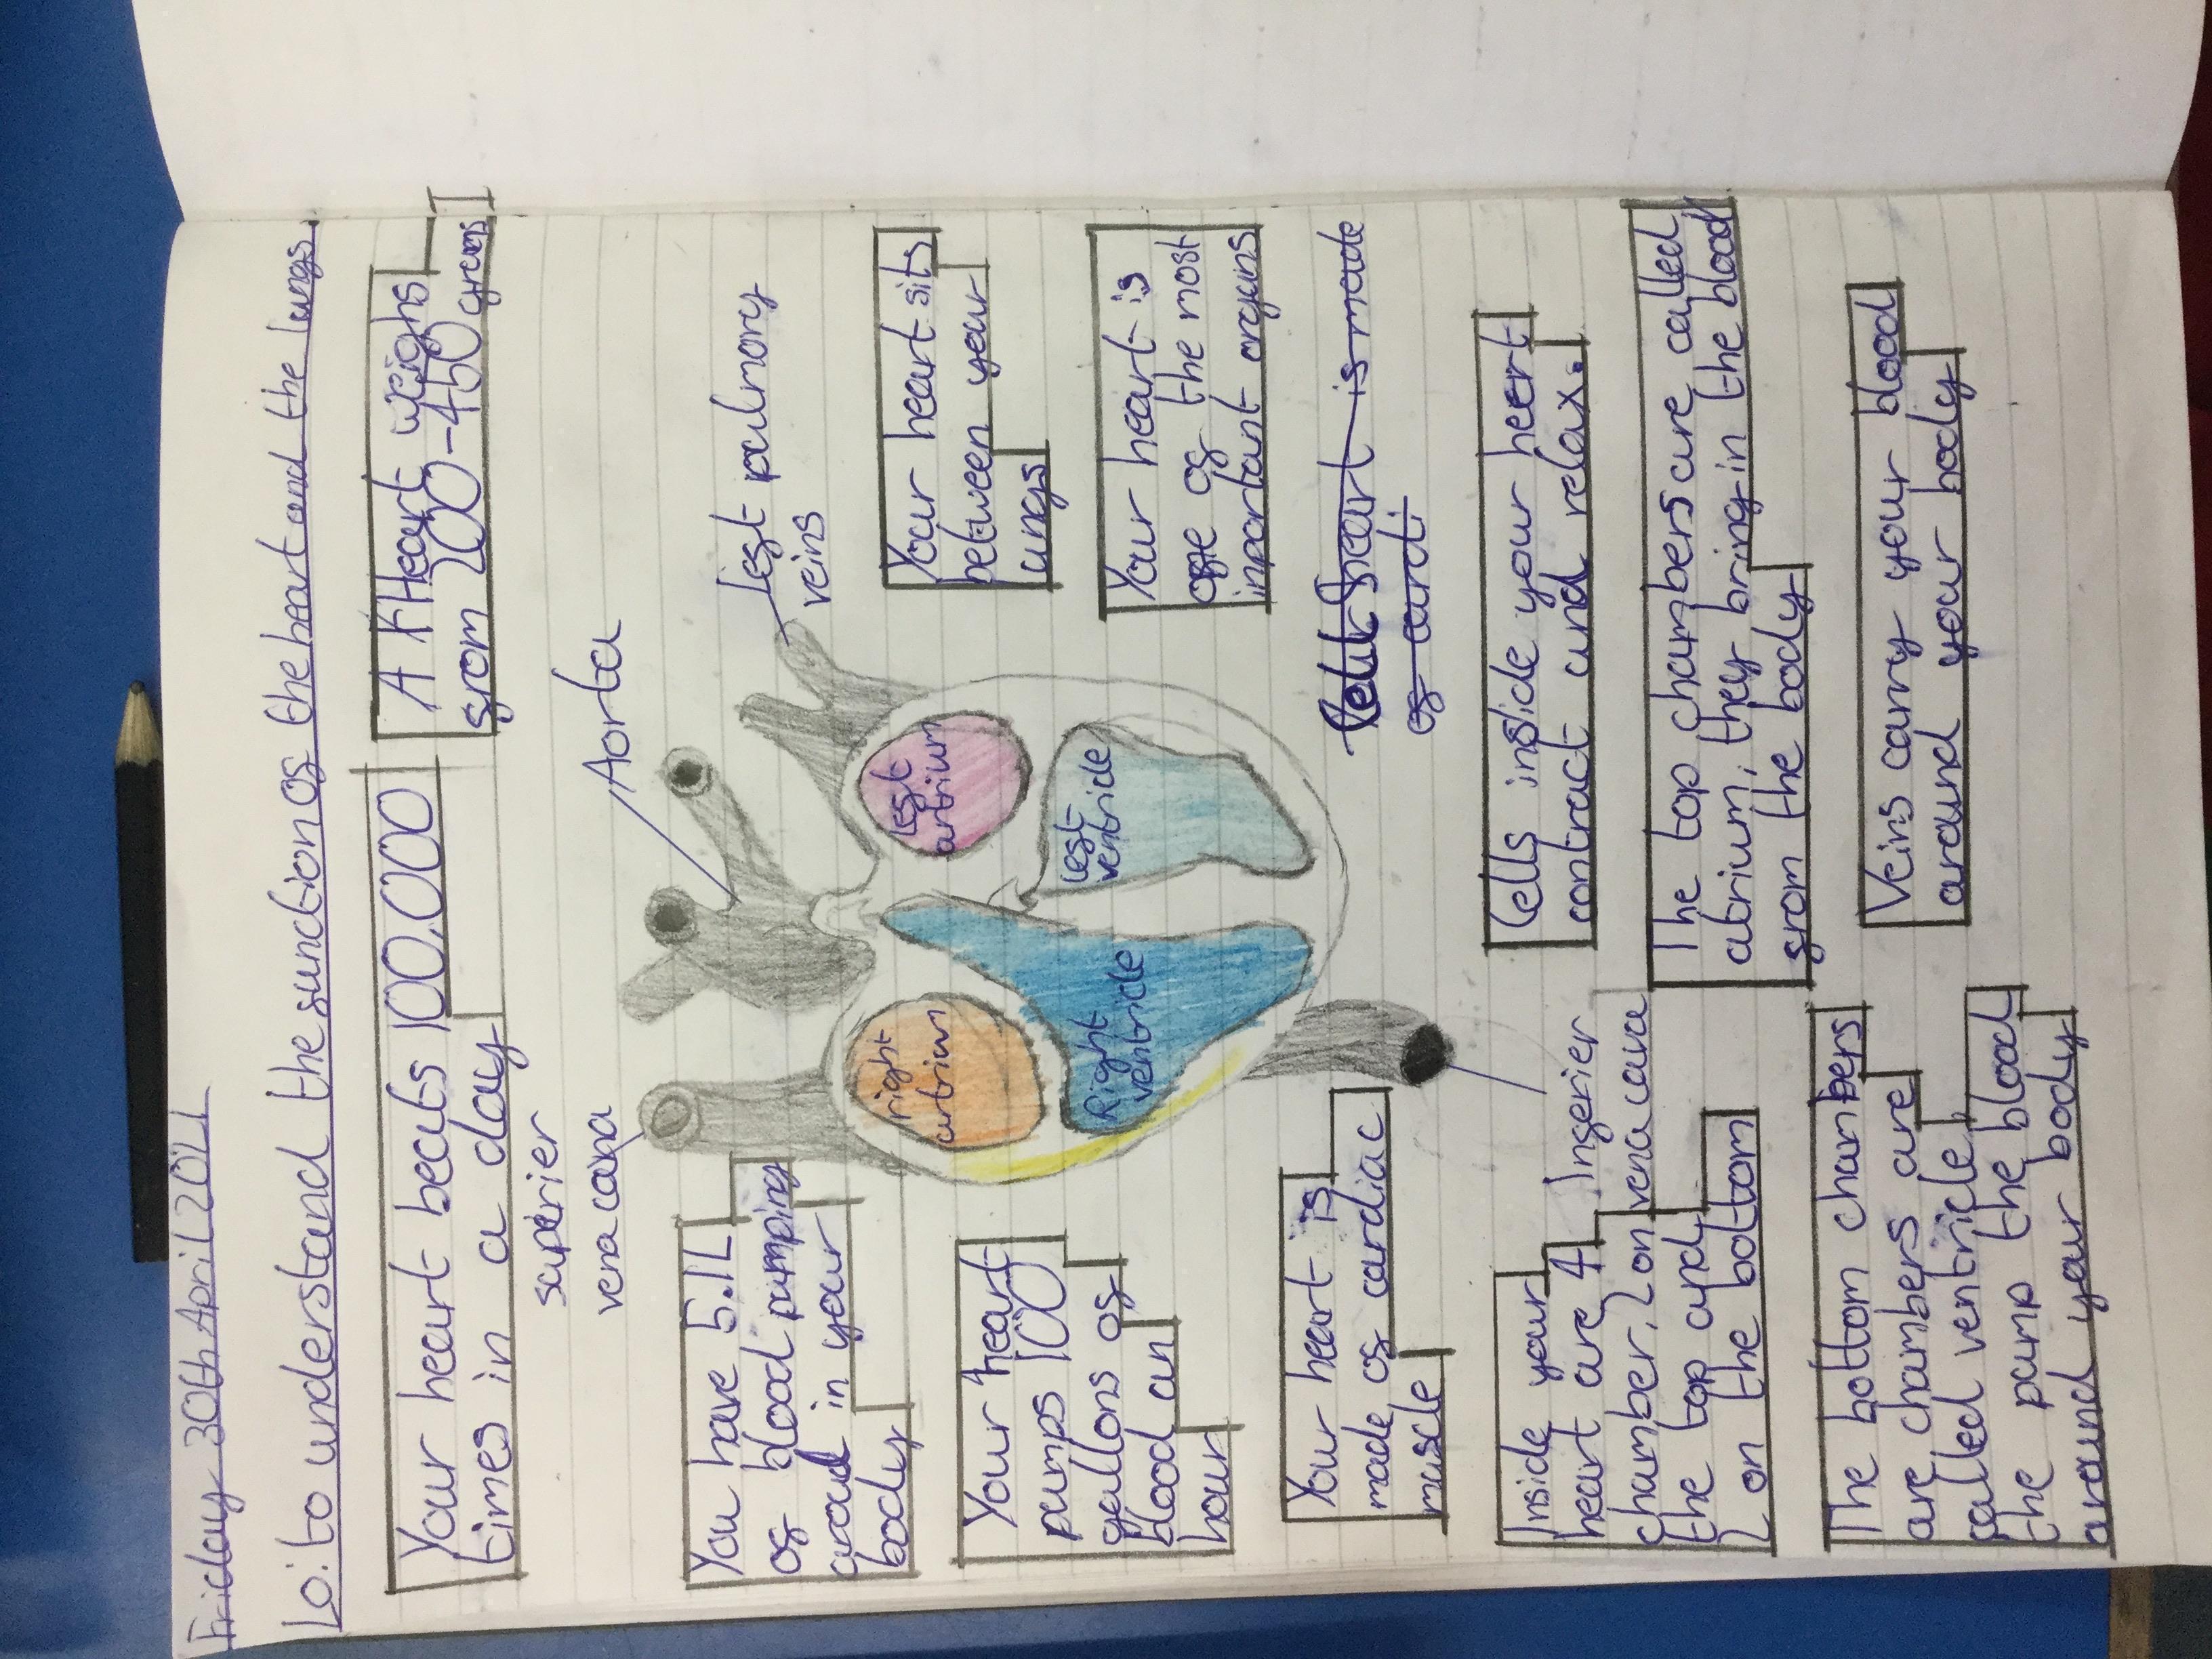 Friday 30th April 2021
Lo: to understand the function of the heart and the lungs.
Your heart beats 100,000
times in a day
A Heart weighs
from 200-450 grams
superier
vena cava
Aorta
Left pulmory
veins
You have 5.1L
of blood pumping
aroud in your
body
Your heart
pumps 100
gallons of
blood an
hour
Your heart is
made of cardiac
muscle
Inside your
heart are 4
chamber, 2 on
the top and
2 on the bottom
The bottom chambers
are chambers are
called ventricle
the pump the blood
around your body
right
artrium
Left
artrium
Right
ventricle
Left
ventricle
Inferier
vena cava
Your heart sits
between your
lungs
Your heart is
one of the most
inportant organs
heart is made
of cardi
Cells inside your heert
contract and relax.
The top chambers are called
atrium, they bring in the blood
from the body
Veins carry your blood
around your body